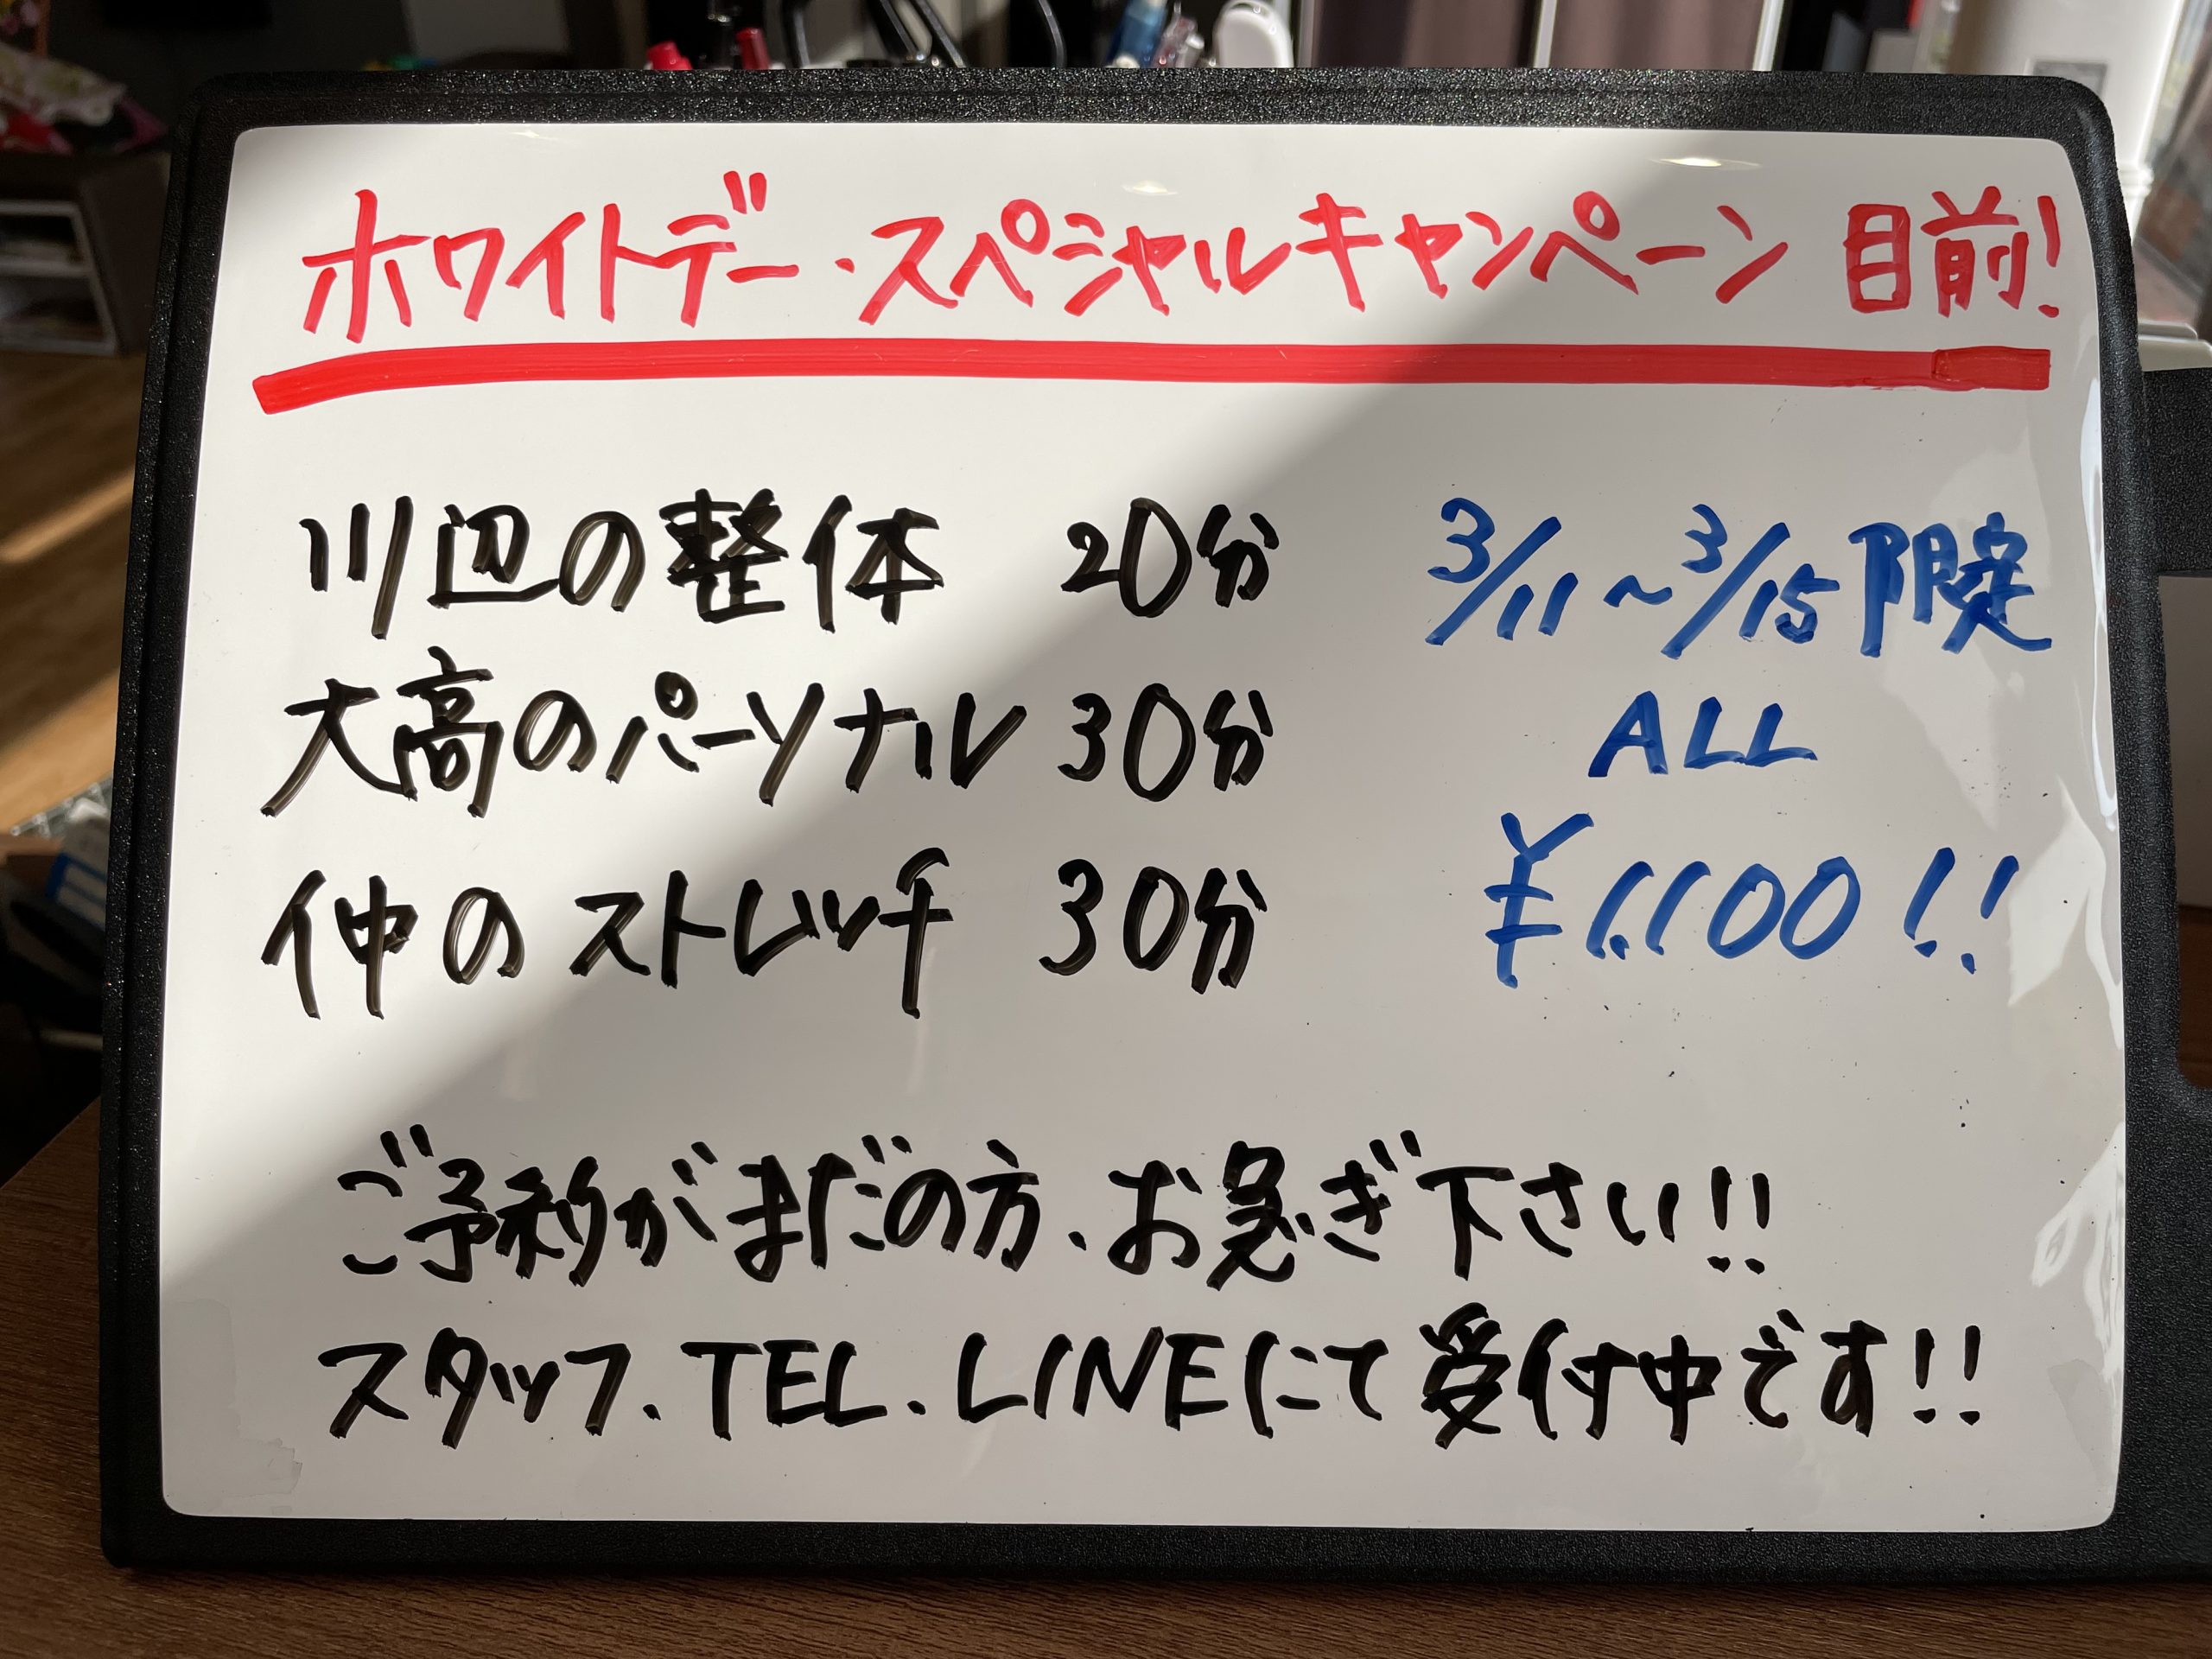 ホワイトデー・スペシャルキャンペーン 目前!
川辺の整体 20分
3/11〜3/15限定
大高のパーソナル 30分
ALL
仲のストレッチ 30分
¥1,100!!
ご予約がまだの方、お急ぎ下さい!!
スタッフ、TEL、LINEにて受付中です!!